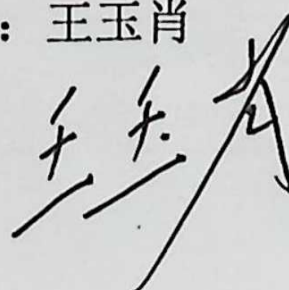 ：王玉肖
王玉肖